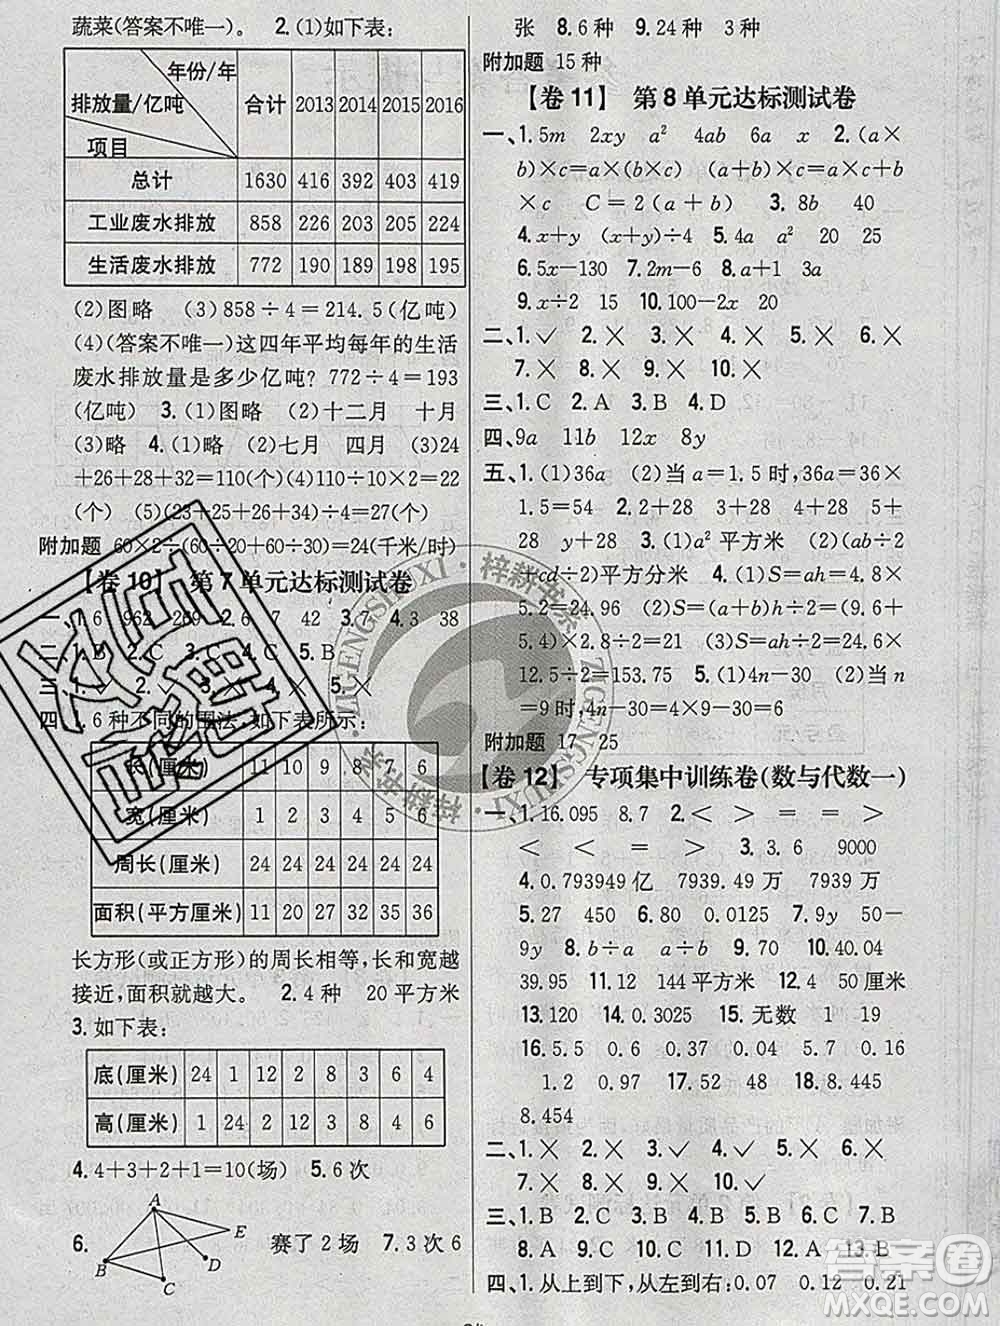 蔬菜(答案不唯一)。 2.(1)如下表:
年份/年
排放量/亿吨
项目
合计 2013 2014 2015 2016
总计 1630 416 392 403 419
工业废水排放 858 226 203 205 224
生活废水排放 772 190 189 198 195
(2)图略 (3)858÷4=214.5(亿吨)
(4)(答案不唯一)这四年平均每年的生活
废水排放量是多少亿吨? 772÷4=193
(亿吨) 3.(1)图略 (2)十二月 十月
(3)略 4.(1)略 (2)七月 四月 (3)24
+26+28+32=110(个) (4)5×10×2=100
(个) (5)(23+25+26+34)÷4=27(个)
附加题 60×2÷(60÷20+60÷30)=24(千米/时)
【卷10】 第7单元达标测试卷
一、1.6 962 269 2.6 7 42 3. 4.3 38
二、1.B 2.C 3.C 4.C 5.B
三、1.✓ 2.✓ 3.× 4.✓ 5.×
四、1.6种不同的围法,如下表所示:
长(厘米) 11 10 9 8 7 6
宽(厘米) 1 2 3 4 5 6
周长(厘米) 24 24 24 24 24 24
面积(平方厘米) 11 20 27 32 35 36
长方形(或正方形)的周长相等,长和宽越
接近,面积就越大。 2.4种 20平方米
3.如下表:
底(厘米) 24 1 12 2 8 3 6 4
高(厘米) 1 24 2 12 3 8 4 6
4.4+3+2+1=10(场) 5.6次
6. A B C D E 赛了2场 7.3次6
张 8.6种 9.24种 3种
附加题 15种
【卷11】 第8单元达标测试卷
一、1.5m 2xy a² 4ab 6a x 2.(a×
b)×c=a×(b×c) (a+b)×c=a×c+b
×c C=2(a+b) 3.8b 40
4.x+y (x+y)÷4 5.4a a² 20 25
6.5x-130 7.2m-6 8.a+1 3a
9.x÷2 15 10.100-2x 20
二、1.✓ 2.× 3.× 4.× 5.× 6.×
7.× 8.× 9.× 10.×
三、1.C 2.A 3.B 4.D
四、9a 11b 12x 8y
五、1.(1)36a (2)当a=1.5时,36a=36×
1.5=54 2.x+28 3x+28 5x+
28 y=5x+28 3.(1)a²平方米 (2)(ab÷2
+cd÷2)平方分米 4.(1)S=ah=4.8×
5.2=24.96 (2)S=(a+b)h÷2=(9.6+
5.4)×2.8÷2=21 (3)S=ah÷2=24.6×
12.5÷2=153.75 5.(1)4n-30 (2)当n
=9时,4n-30=4×9-30=6
附加题 17 25
【卷12】 专项集中训练卷(数与代数一)
一、1.16.095 8.7 2.< > = >
< < = > 3.3.6 9000
4.0.793949亿 7939.49万 7939万
5.27 450 6.80 2.25 7.9y 50-
9y 8.b÷a a÷b 9.70 10.40.04
39.95 11.16 144平方厘米 12.4 50厘米
13.120 14.0.3025 15.无数 1 19
16.5.5 0.6 0.37 0.04 0.32
1.2 0.9 17.0.42 0.48 18.8.445
8.454
二、1.× 2.× 3.× 4.× 5.✓ 6.✓
7.× 8.× 9.× 10.✓
三、1.B 2.C 3.C 4.B 5.C 6.B 7.B
8.A 9.C 10.B 11.B 12.A 13.B
四、1.从上到下,从左到右:0.07 0.12 0.21
梓耕书系
ZIGENGSHUXI
答案圈
MXQE.COM